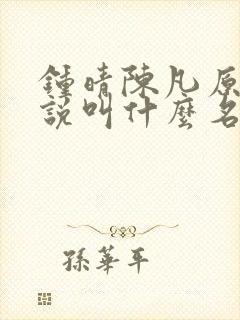 鍾晴陳凡原
說叫什麼名
孫華平